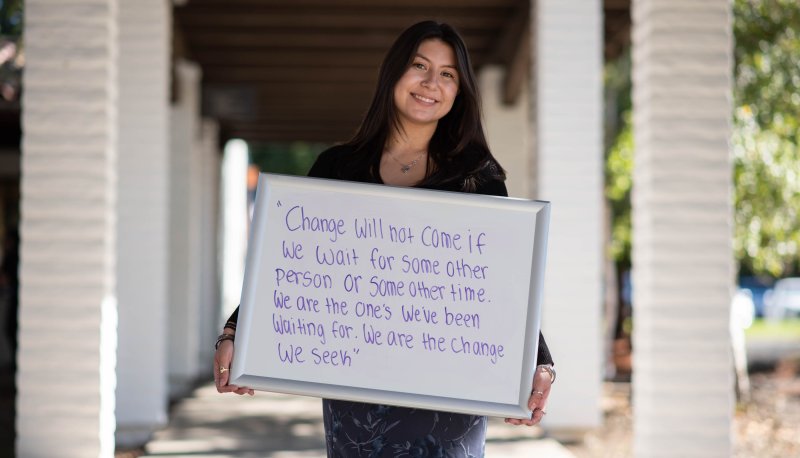 "Change Will not Come if
We Wait for Some other
Person Or Some other time.
We are the One's We've been
Waiting for. We are the Change
We Seek"